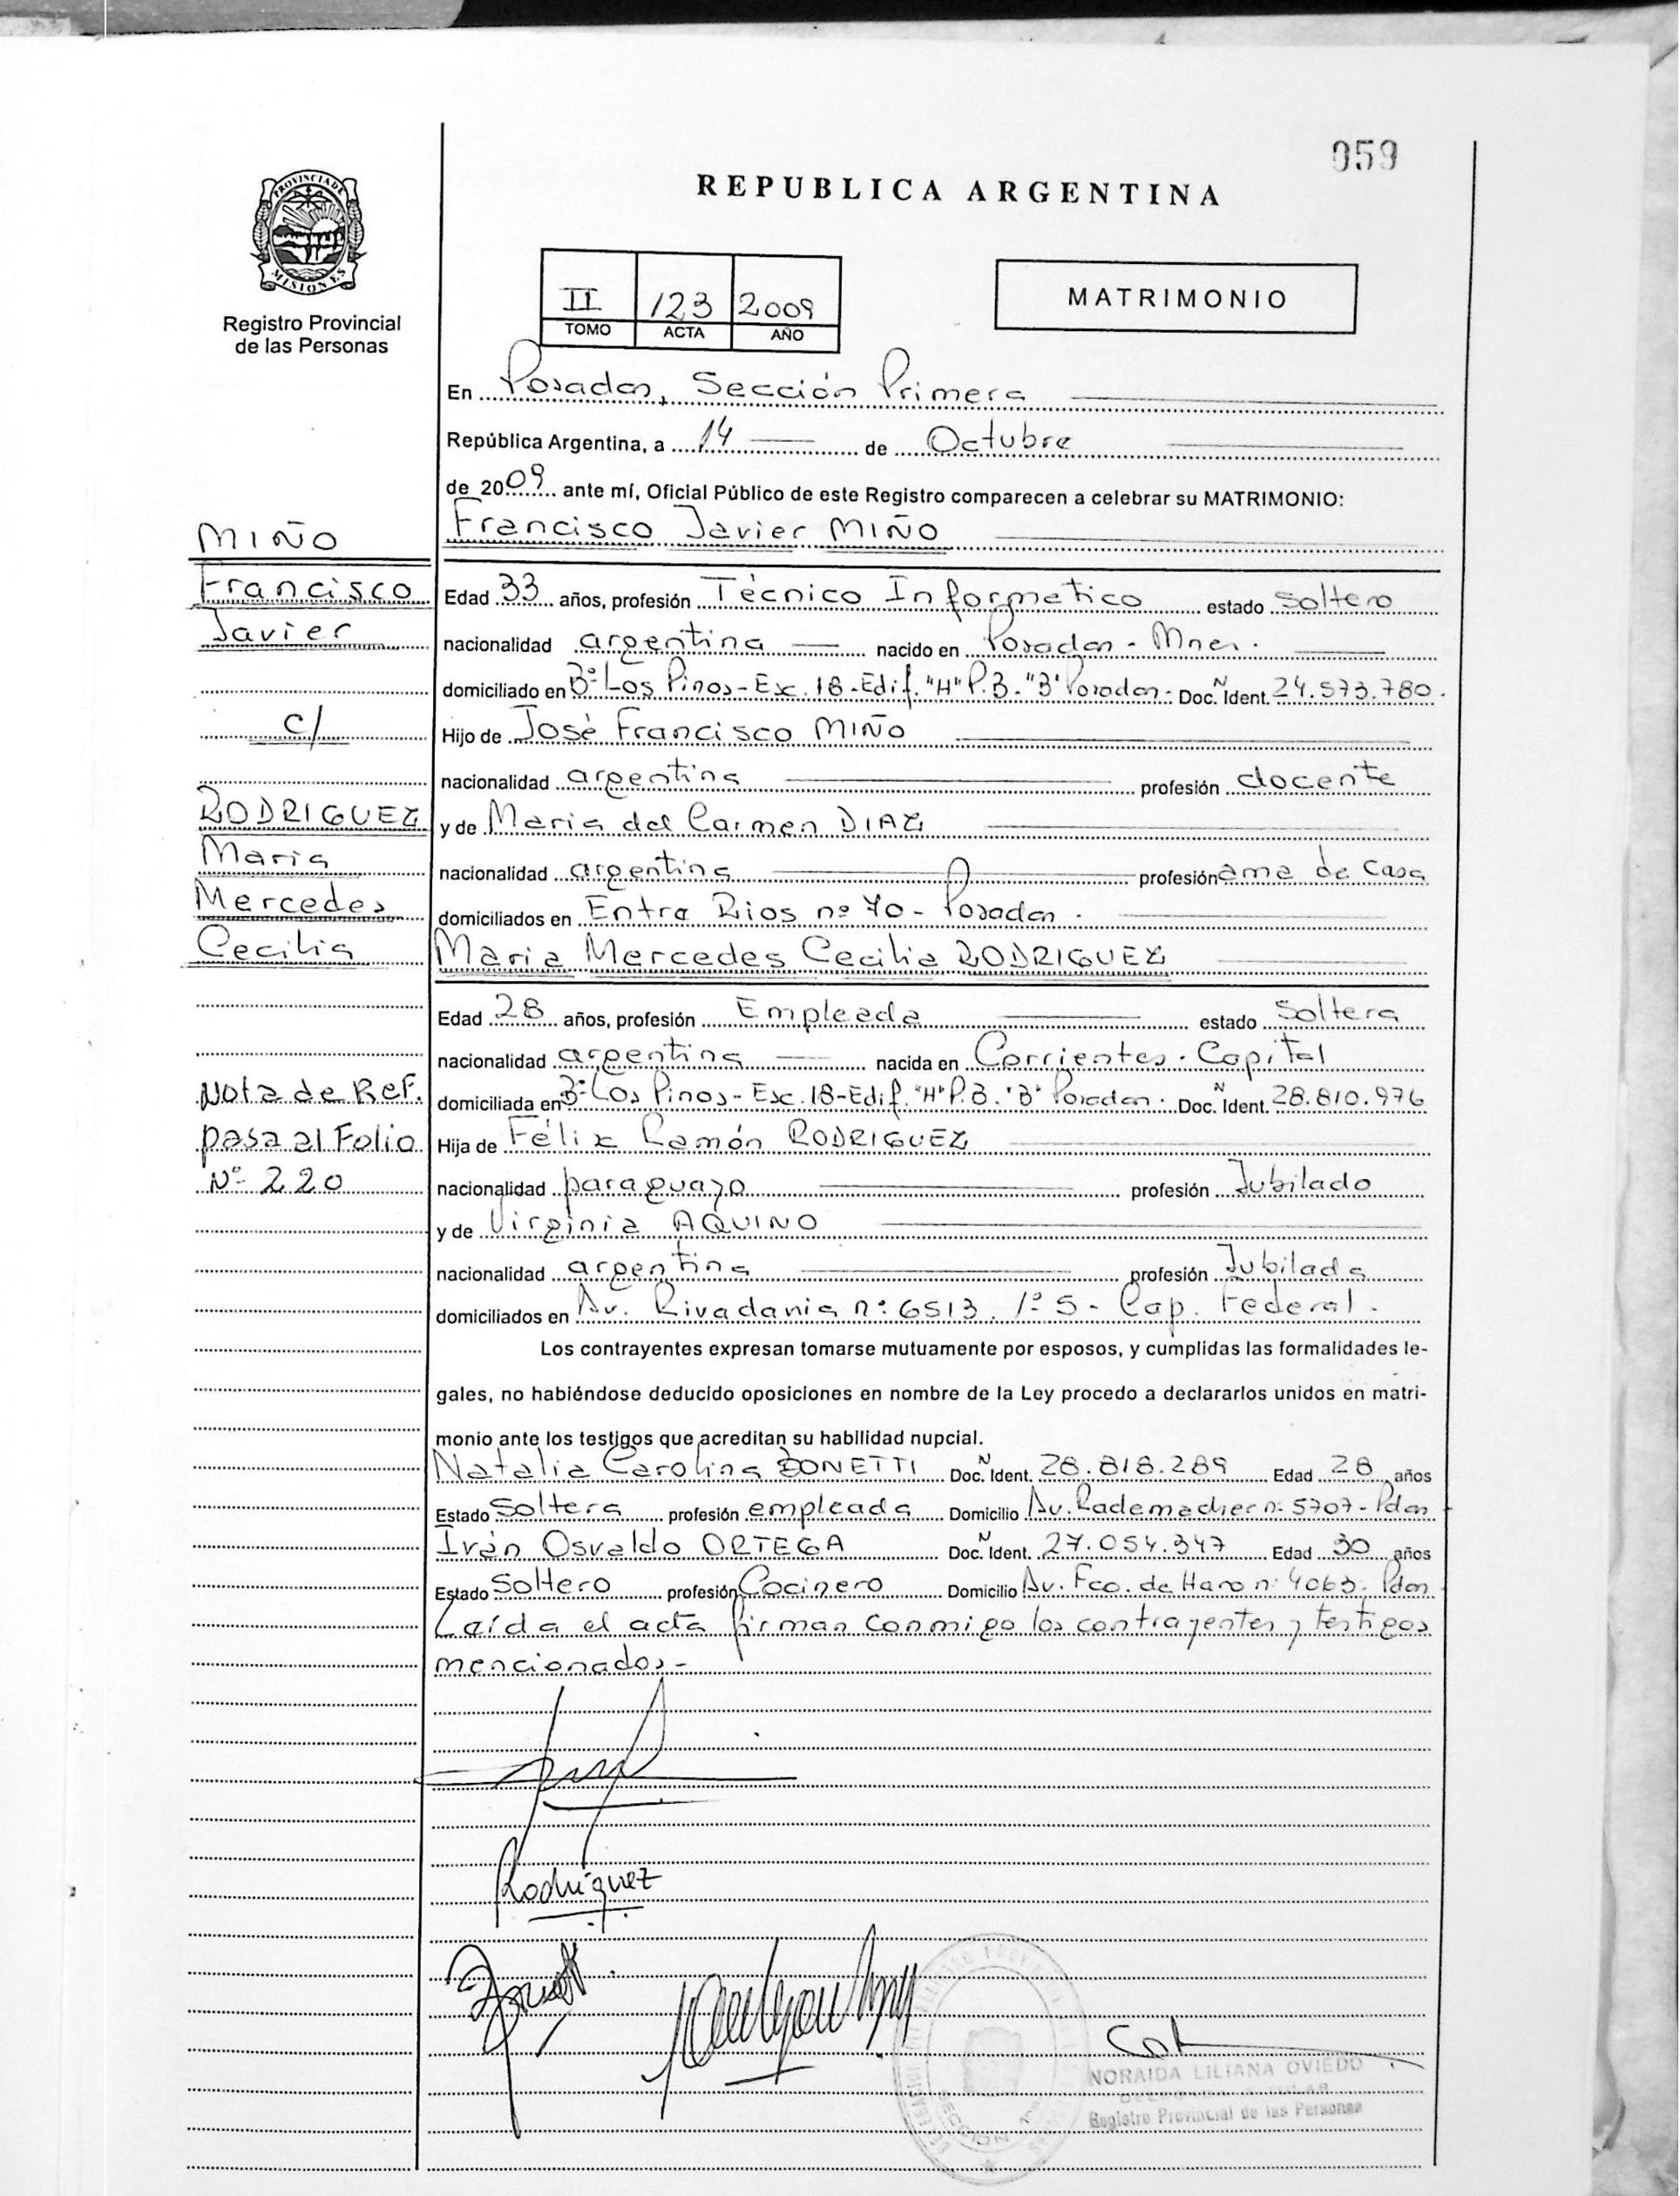 059
PROVINCIA DE
MISIONES
Registro Provincial
de las Personas
REPUBLICA ARGENTINA
II 123 2009
TOMO ACTA AÑO
MATRIMONIO
En Posadas, Sección Primera
República Argentina, a 14 de Octubre
de 2009 ante mí, Oficial Público de este Registro comparecen a celebrar su MATRIMONIO:
Francisco Javier MIÑO
Edad 33 años, profesión Técnico Informatico estado soltero
nacionalidad argentina nacido en Posadas - Mnes.
domiciliado en Bº Los Pinos - Esc. 18 - Edif. "H" P.B. "B" Posadas. Doc. Ñ Ident. 24.573.780.
Hijo de José Francisco MIÑO
nacionalidad argentina profesión docente
y de Maria del Carmen DIAZ
nacionalidad argentina profesión ama de casa
domiciliados en Entre Rios nº 70 - Posadas.
Maria Mercedes Cecilia RODRIGUEZ
Edad 28 años, profesión Empleada estado Soltera
nacionalidad argentina nacida en Corrientes - Capital
domiciliada en Bº Los Pinos - Esc. 18 - Edif. "H" P.B. "B" Posadas. Doc. Ñ Ident. 28.810.976
Hija de Félix Ramón RODRIGUEZ
nacionalidad paraguayo profesión Jubilado
y de Virginia AQUINO
nacionalidad argentina profesión Jubilada
domiciliados en Av. Rivadavia nº 6513 1º 5 - Cap. Federal.
Los contrayentes expresan tomarse mutuamente por esposos, y cumplidas las formalidades le-
gales, no habiéndose deducido oposiciones en nombre de la Ley procedo a declararlos unidos en matri-
monio ante los testigos que acreditan su habilidad nupcial.
Natalia Carolina BONETTI Doc. Ñ Ident. 28.818.289 Edad 28 años
Estado Soltera profesión empleada Domicilio Av. Rademacher nº 5707 - Pdas
Iván Osvaldo ORTEGA Doc. Ñ Ident. 27.054.347 Edad 30 años
Estado Soltero profesión Cocinero Domicilio Av. Fco. de Haro nº 4063 - Pdas
Leída el acta firman conmigo los contrayentes y testigos
mencionados -
Rodríguez
NORAIDA LILIANA OVIEDO
Registro Provincial de las Personas
MIÑO
Francisco
Javier
c/
RODRIGUEZ
Maria
Mercedes
Cecilia
Nota de Ref.
pasa al Folio
Nº 220